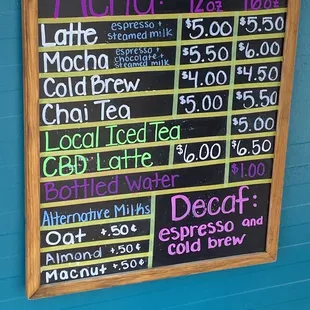 Menu 12oz 16oz
Latte espresso + steamed milk $5.00 $5.50
Mocha espresso + chocolate + steamed milk $5.50 $6.00
Cold Brew $4.00 $4.50
Chai Tea $5.00 $5.50
Local Iced Tea $5.00
CBD Latte $6.00 $6.50
Bottled Water $1.00
Alternative Milks
Oat +.50¢
Almond +.50¢
Macnut +.50¢
Decaf:
espresso and
cold brew